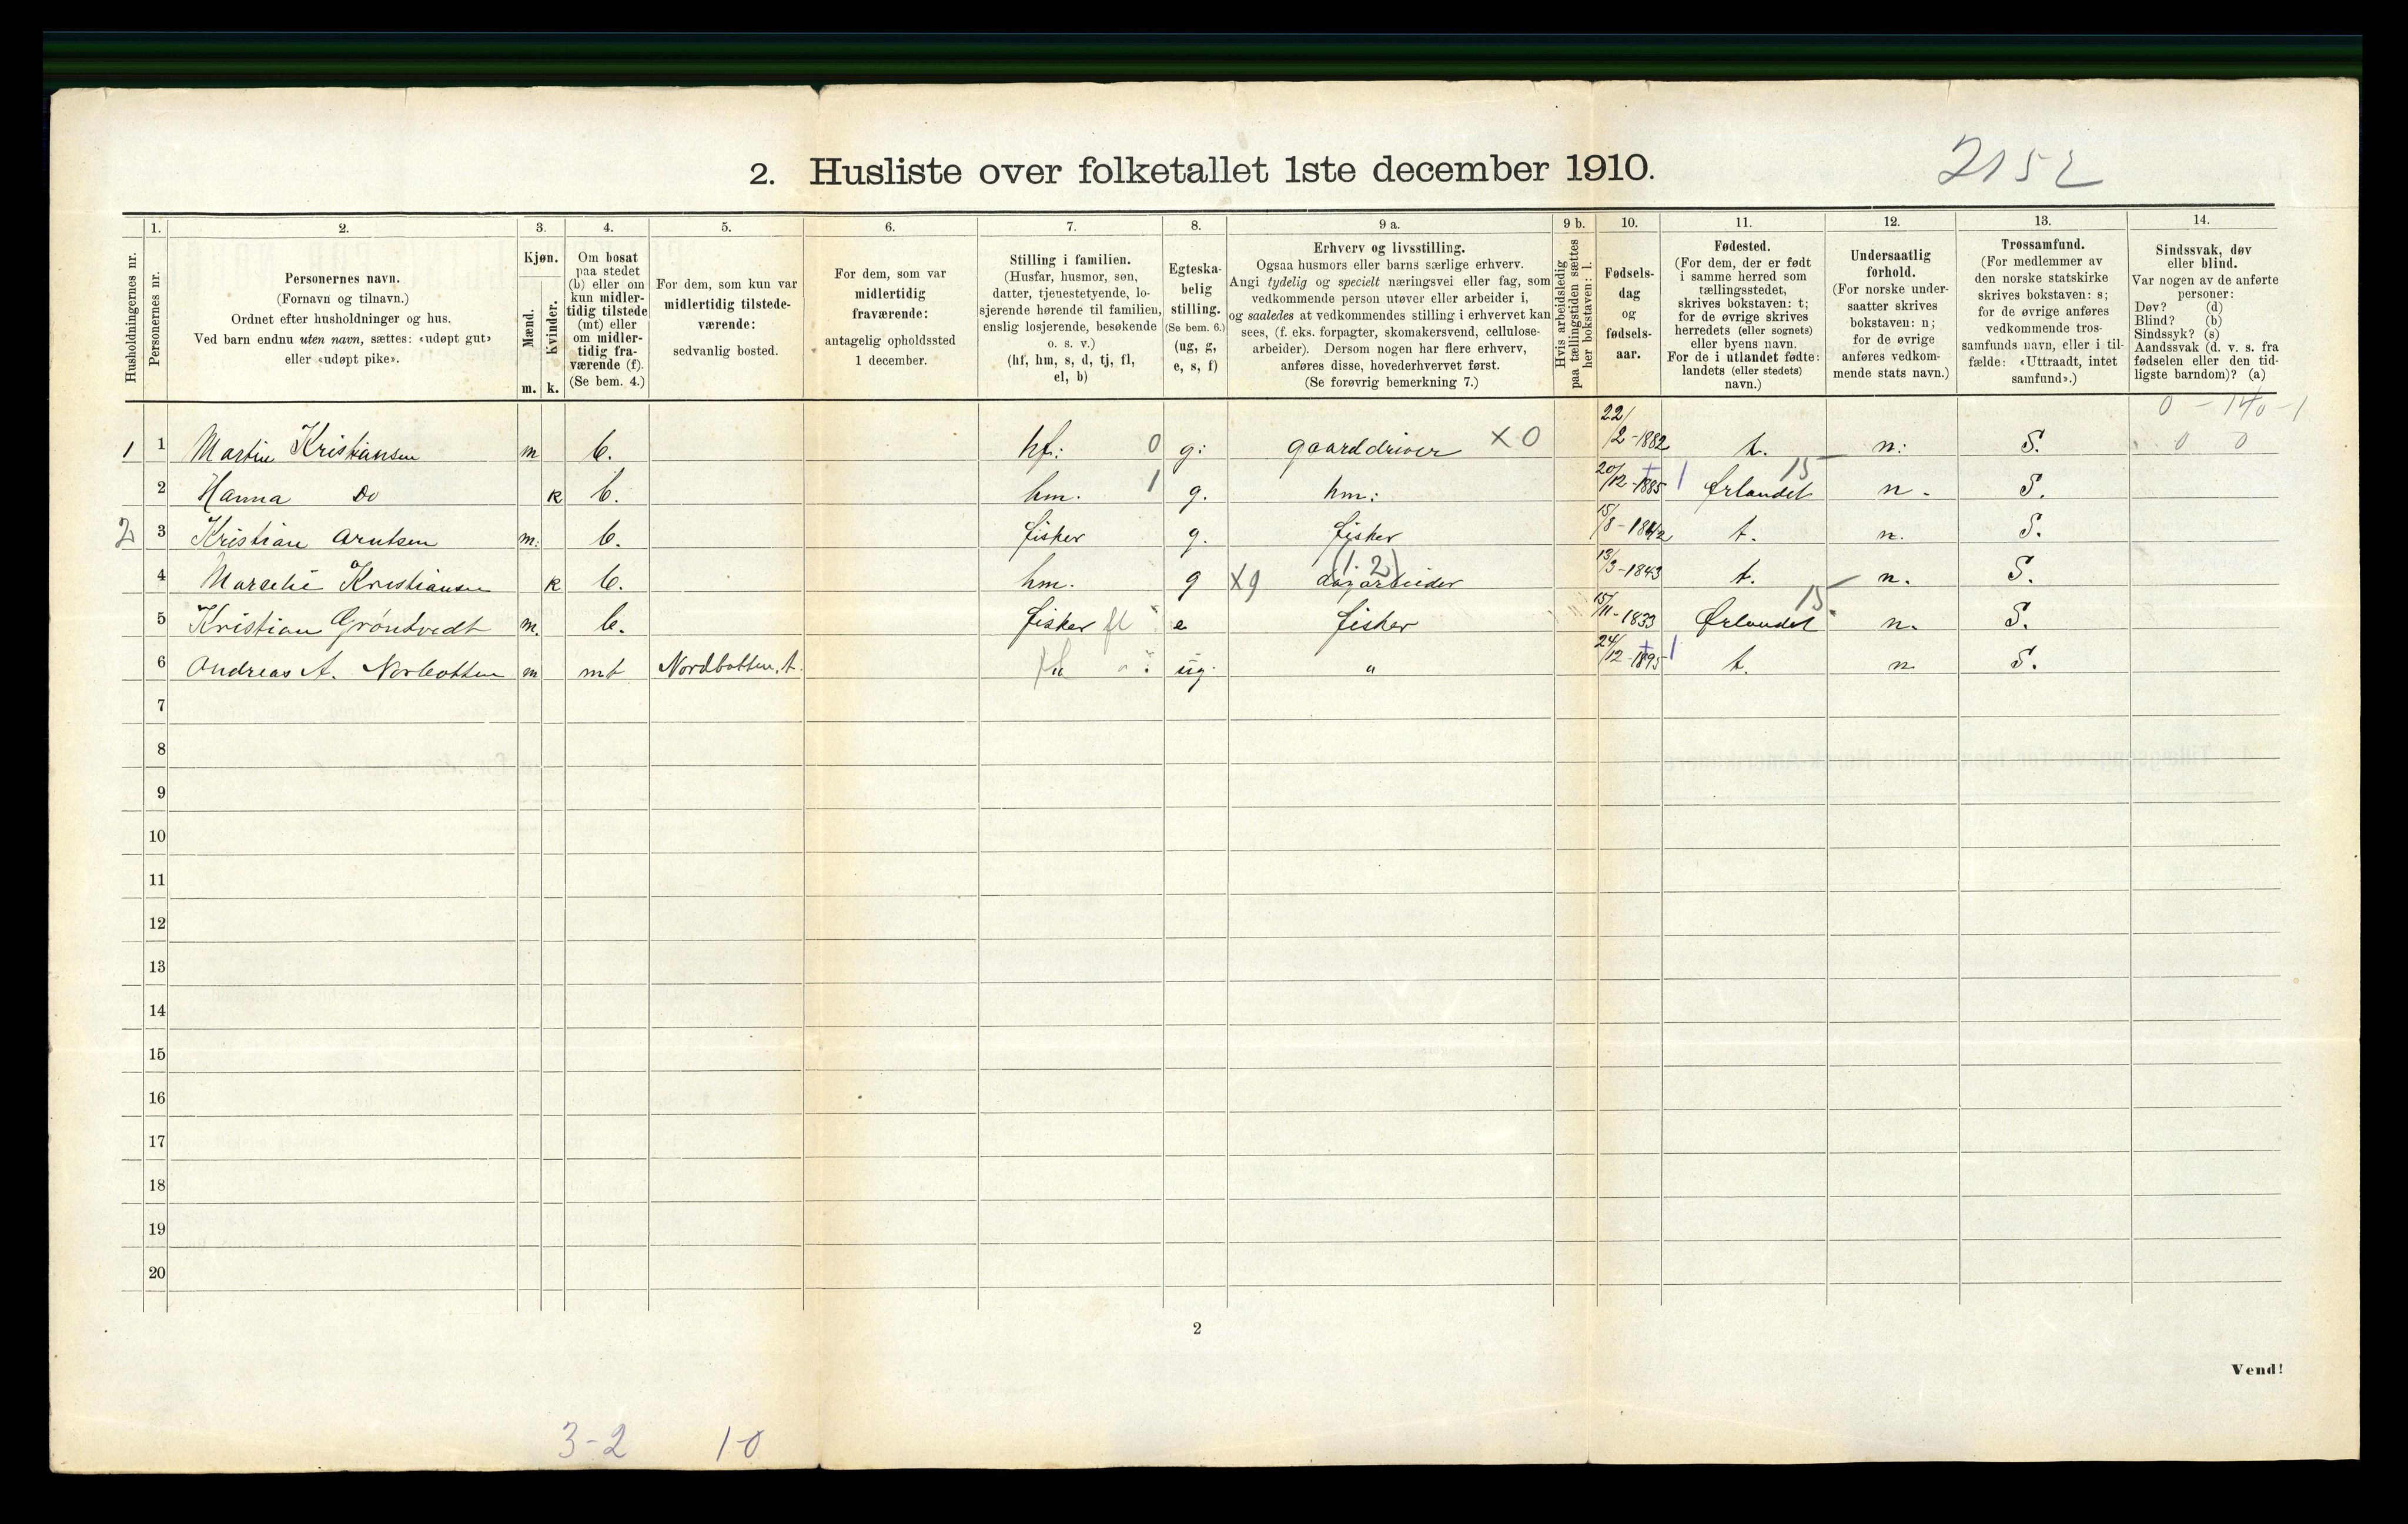 2. Husliste over folketallet 1ste december 1910.
2152
Husholdningernes nr.
1.
Personernes nr.
2.
Personernes navn.
(Fornavn og tilnavn.)
Ordnet efter husholdninger og hus.
Ved barn endnu uten navn, sættes: «udøpt gut»
eller «udøpt pike».
3.
Kjøn.
Mænd.
Kvinder.
m. k.
4.
Om bosat
paa stedet
(b) eller om
kun midler-
tidig tilstede
(mt) eller
om midler-
tidig fra-
værende (f).
(Se bem. 4.)
5.
For dem, som kun var
midlertidig tilstede-
værende:
sedvanlig bosted.
6.
For dem, som var
midlertidig
fraværende:
antagelig opholdssted
1 december.
7.
Stilling i familien.
(Husfar, husmor, søn,
datter, tjenestetyende, lo-
sjerende hørende til familien,
enslig losjerende, besøkende
o. s. v.)
(hf, hm, s, d, tj, fl,
el, b)
8.
Egteska-
belig
stilling.
(Se bem. 6.)
(ug, g,
e, s, f)
9 a.
Erhverv og livsstilling.
Ogsaa husmors eller barns særlige erhverv.
Angi tydelig og specielt næringsvei eller fag, som
vedkommende person utøver eller arbeider i,
og saaledes at vedkommendes stilling i erhvervet kan
sees, (f. eks. forpagter, skomakersvend, cellulose-
arbeider). Dersom nogen har flere erhverv,
anføres disse, hovederhvervet først.
(Se forøvrig bemerkning 7.)
9 b.
Hvis arbeidsledig
paa tællingstiden sættes
her bokstaven: l.
10.
Fødsels-
dag
og
fødsels-
aar.
11.
Fødested.
(For dem, der er født
i samme herred som
tællingsstedet,
skrives bokstaven: t;
for de øvrige skrives
herredets (eller sognets)
eller byens navn.
For de i utlandet fødte:
landets (eller stedets)
navn.)
12.
Undersaatlig
forhold.
(For norske under-
saatter skrives
bokstaven: n;
for de øvrige
anføres vedkom-
mende stats navn.)
13.
Trossamfund.
(For medlemmer av
den norske statskirke
skrives bokstaven: s;
for de øvrige anføres
vedkommende tros-
samfunds navn, eller i til-
fælde: «Uttraadt, intet
samfund».)
14.
Sindssvak, døv
eller blind.
Var nogen av de anførte
personer:
Døv? (d)
Blind? (b)
Sindssyk? (s)
Aandssvak (d. v. s. fra
fødselen eller den tid-
ligste barndom)? (a)
1 1 Martin Kristiansen m b. hf: 0 g: gaarddriver x 0 22/2-1882 t. n: S. 0 0
2 Hanna Do k b. hm. 1 g. hm: 20/12-1885 1 Ørlandet 15 n. S.
2 3 Kristian Arntsen m: b. fisker g. fisker 15/8-1842 t. n. S.
4 Marselie Kristiansen k b. hm. g x9 dagarbeider (1.2) 13/3-1843 t. n. S.
5 Kristian Grøntvedt m. b. fisker fl e fisker 15/11-1833 Ørlandet 15 n. S.
6 Andreas A. Norbotten m mt Nordbotten, t. " ug. " 24/12-1895 1 t. n S.
7
8
9
10
11
12
13
14
15
16
17
18
19
20
2
Vend!
3-2 1-0